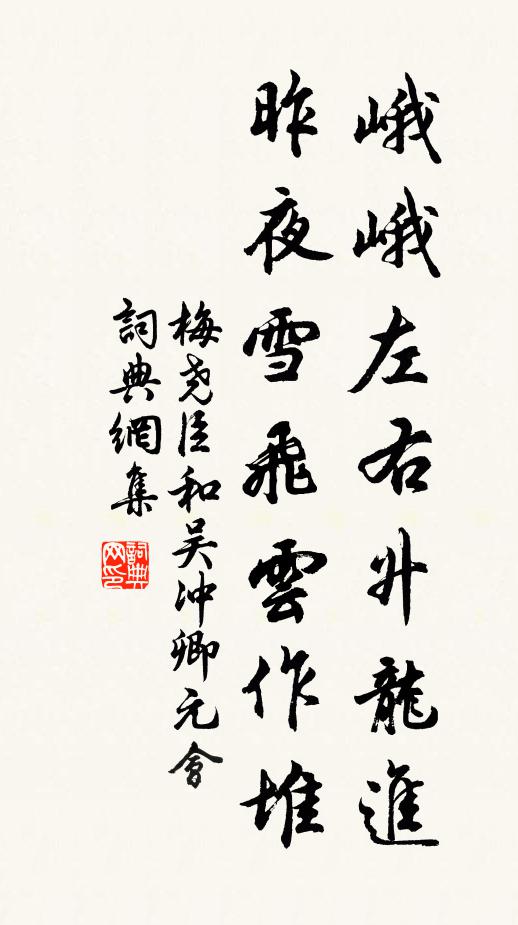 峨峨左右升龍進
昨夜雪飛雲作堆
梅尧臣和吴冲卿元會
詞典網集
詞典網印